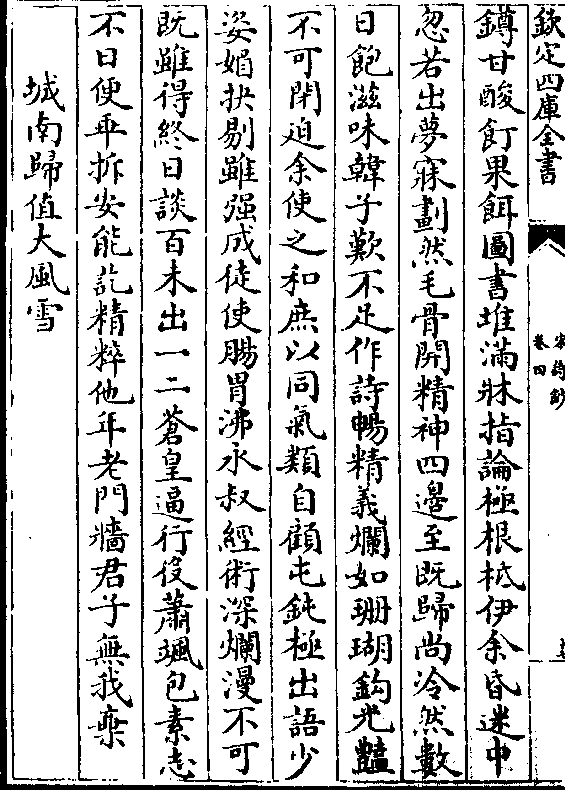 欽定四庫全書
宋詩鈔
卷四
罇甘酸飣果餌圖書堆滿牀指論極根柢伊余昏迷中
忽若出夢寐劃然毛骨開精神四邉至既歸尚冷然數
日飽滋味韓子歎不足作詩暢精義爛如珊瑚鈎光豔
不可閉迫余使之和庶以同氣類自顧屯鈍極出語少
姿媚抉剔雖强成徒使腸胃沸永叔經術深爛漫不可
既雖得終日談百未出一二蒼皇逼行役蕭颯包素志
不日便平拆安能訖精粹他年老門牆君子無我棄
城南歸值大風雪